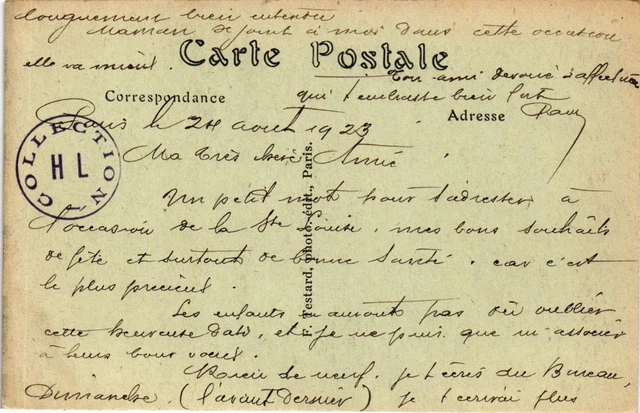 longuement bien entendu
Maman se joint à moi dans cette occasion
elle va mieux.
Carte Postale
Ton ami dévoué & affectueux
qui t'embrasse bien fort
Correspondance
Adresse
Paris le 24 août 1923
COLLECTION
HL
Ma très chère Amie
Un petit mot pour t'adresser à
l'occasion de la Ste Louise, mes bons souhaits
de fête et surtout de bonne santé, car c'est
le plus précieux.
Les enfants auront pas dû oublier
cette heureuse date, et je ne puis que m'associer
à leurs bons voeux.
Rien de neuf. je t'écris du Bureau,
Dimanche (l'avant Dernier) je t'écrirai plus
F. Testard, photo-édit., Paris.